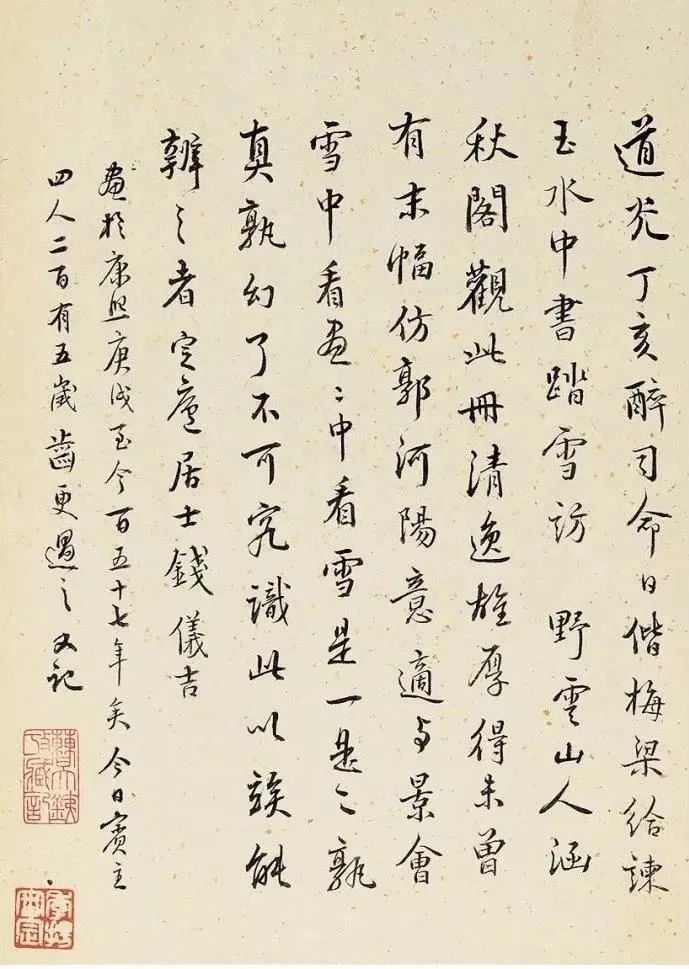 道光丁亥醉司命日偕梅梁給諫
玉水中書踏雪訪　野雲山人涵
秋閣觀此冊清逸雄厚得未曾
有末幅仿郭河陽意適与景會
雪中看畫〻中看雪是一是二孰
真孰幻了不可究識此以竢能
辨之者　定廬居士錢儀吉
畫於康熙庚戌至今百五十七年矣今日賓主
四人二百有五歲齒更過之又記